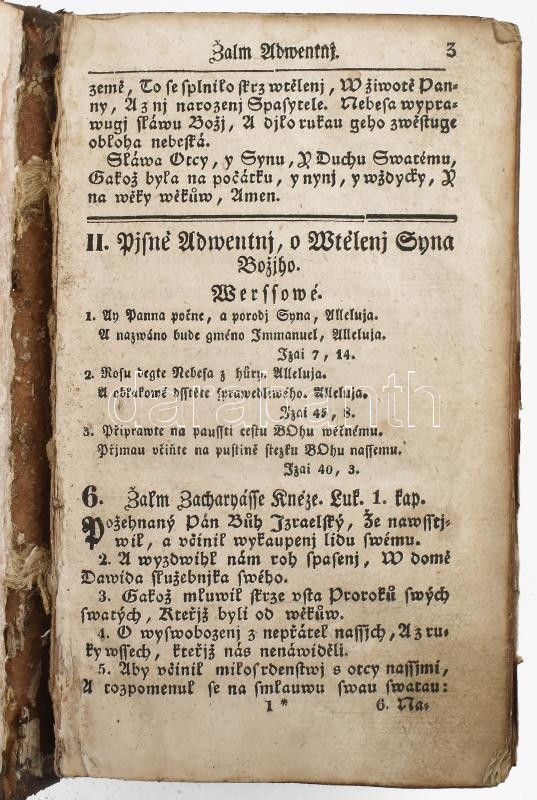 Žalm Adwentnj. 3
země, To se splnilo skrz wtělenj, W žiwotě Pan-
ny, A z nj narozenj Spasytele. Nebesa wypra-
wugj sláwu Božj, A djlo rukau geho zwěstuge
obloha nebeská.
Sláwa Otcy, y Synu, Y Duchu Swatému,
Gakož byla na počátku, y nynj, y wždycky, Y
na wěky wěkůw, Amen.
II. Pjsně Adwentnj, o Wtělenj Syna
Božjho.
Werssowé.
1. Ay Panna počne, a porodj Syna, Alleluja.
A nazwáno bude gméno Immanuel, Alleluja.
Izai 7, 14.
2. Rosu degte Nebesa z hůry. Alleluja.
A oblakowé dsstěte sprawedliwého. Alleluja.
Izai 45, 8.
3. Připrawte na paussti cestu BOhu wěčnému.
Přjmau včiňte na pustině stezku BOhu nassemu.
Izai 40, 3.
6. Žalm Zacharyásse Kněze. Luk. 1. kap.
Požehnaný Pán Bůh Izraelský, Že nawsstj-
wil, a včinil wykaupenj lidu swému.
2. A wyzdwihl nám roh spasenj, W domě
Dawida služebnjka swého.
3. Gakož mluwil skrze vsta Proroků swých
swatých, Kteřjž byli od wěkůw.
4. O wyswobozenj z nepřátel nassjch, A z ru-
ky wssech, kteřjž nás nenáwiděli.
5. Aby včinil milosrdenstwj s otcy nassjmi,
A rozpomenul se na smlauwu swau swatau:
1 * 6. Na-
darabanth